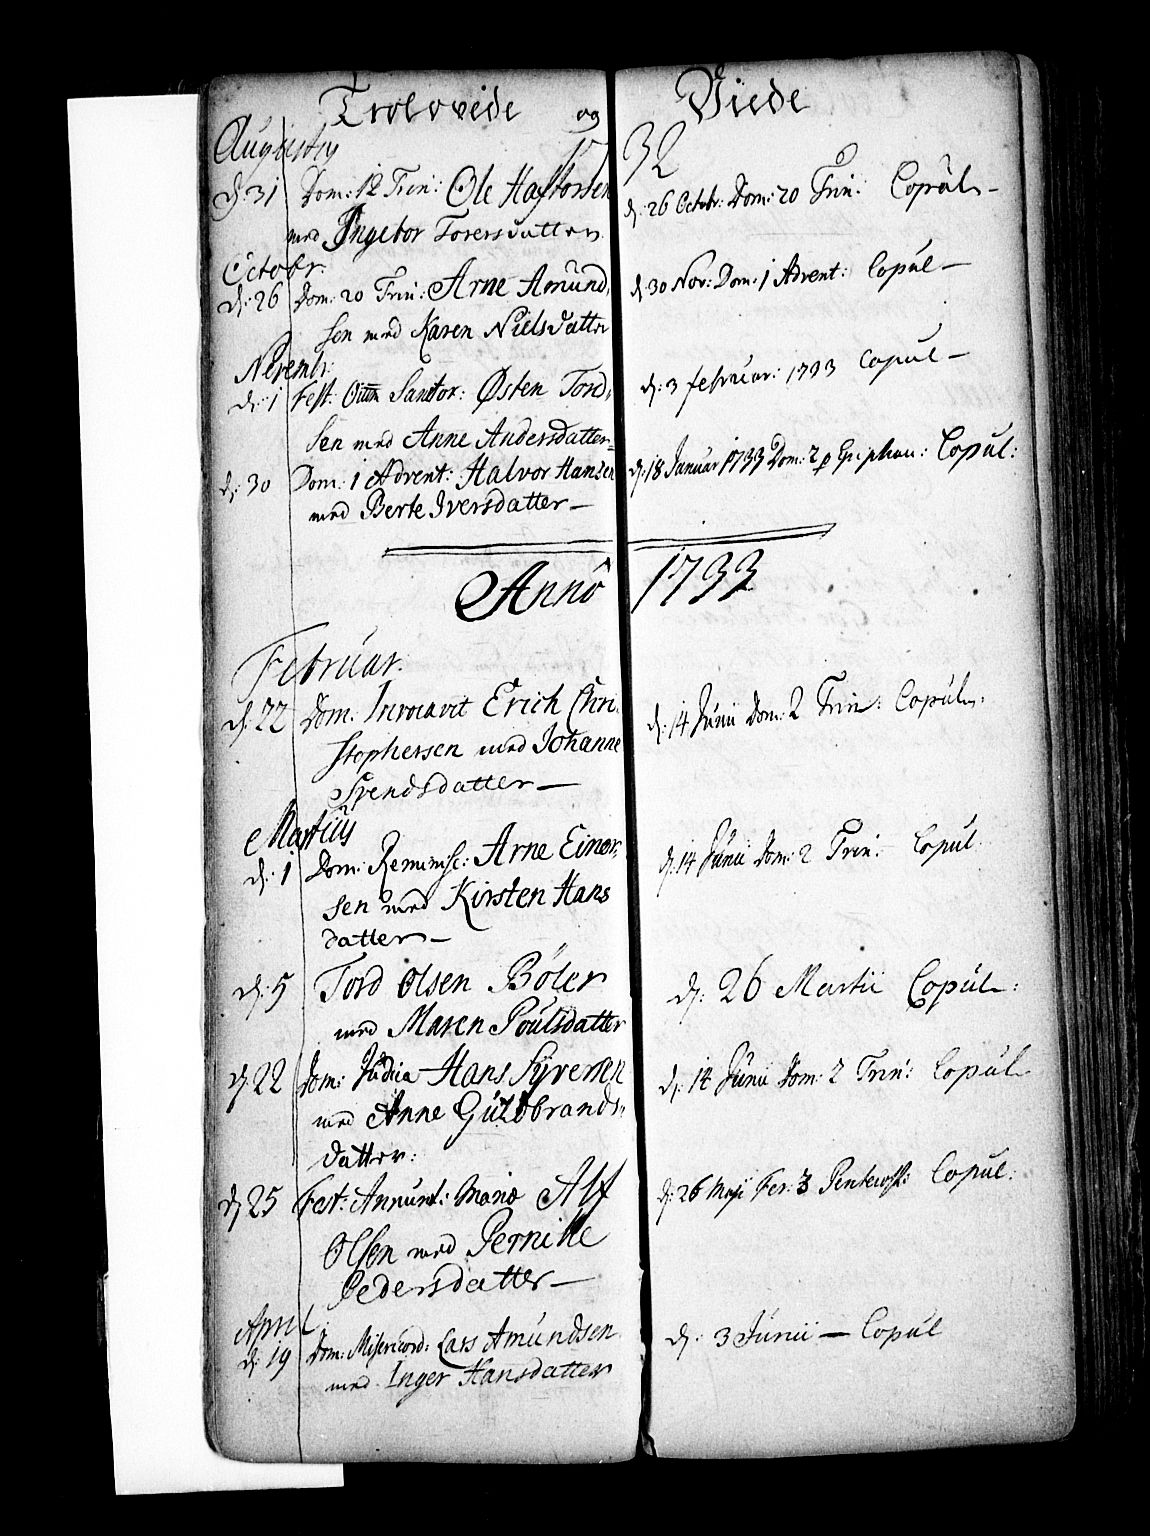 Trolovede og Viede
Augusty 17 32
d: 31 Dom: 12 Trin: Ole Haftorsen d: 26 Octobr: Dom: 20 Trin: Copul-
med Ingebor Torersdatter
Octobr:
d: 26 Dom: 20 Trin: Arne Amund- d: 30 Nov: Dom: 1 Advent: Copul-
sen med Karen Nielsdatter
Novembr:
d: 1 Fest: Omn Sanctor: Østen Tord- d: 3 februar: 1733 Copul-
sen med Anne Andersdatter
d: 30 Dom: 1 Advent: Halvor Hansen d: 18 Januar 1733 Dom: 2 p Epiphan: Copul:
med Berte Iversdatter-
Anno 1733
Februar:
d: 22 Dom: Invocavit Erich Chri- d: 14 Junii Dom: 2 Trin: Copul:
stophersen med Johanne
Svendsdatter-
Martius
d: 1 Dom: Reminisc: Arne Einer- d: 14 Junii Dom: 2 Trin: Copul.
sen med Kirsten Hans
datter-
d: 5 Tord Olsen Bøler d: 26 Martii Copul:
med Maren Poulsdatter
d: 22 Dom: Judica Hans Syversen d: 14 Junii Dom: 2 Trin: Copul-
med Anne Guldbrands-
datter:
d: 25 Fest: Annunt: Mariæ Alf d: 26 Maji Fer: 3 Pentecost: Copul:
Olsen med Pernille
Pedersdatter-
April:
d: 19 Dom: Misericord: Lars Amundsen d: 3 Junii - Copul
med Inger Hansdatter